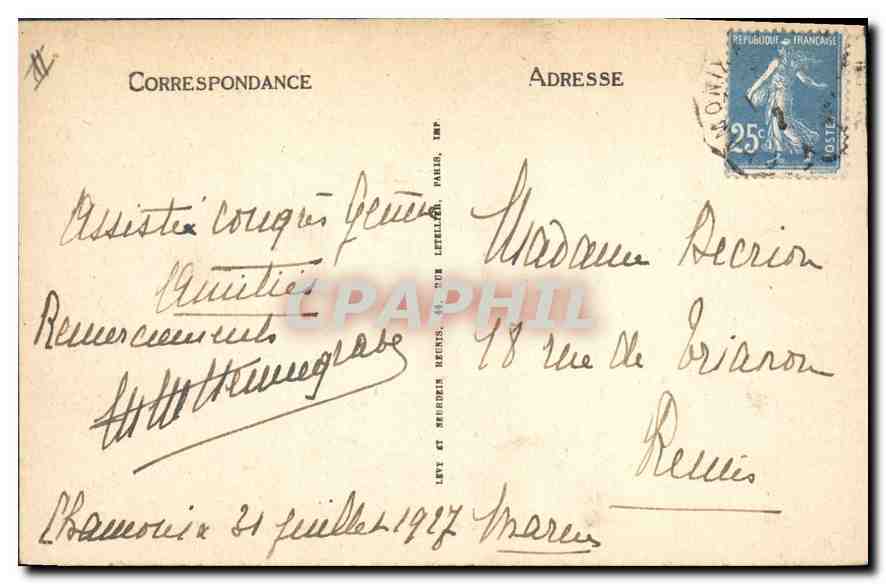 CORRESPONDANCE
ADRESSE
REPUBLIQUE FRANÇAISE
25c
POSTES
Assistée congrès Genève
Amitiés
Remerciements
Hennegrave
Chamonix 31 juillet 1927
LEVY ET NEURDEIN REUNIS, 44, RUE LETELLIER, PARIS, IMP.
Madame Decrion
18 rue de Trianon
Reims
Marne
CPAPHIL